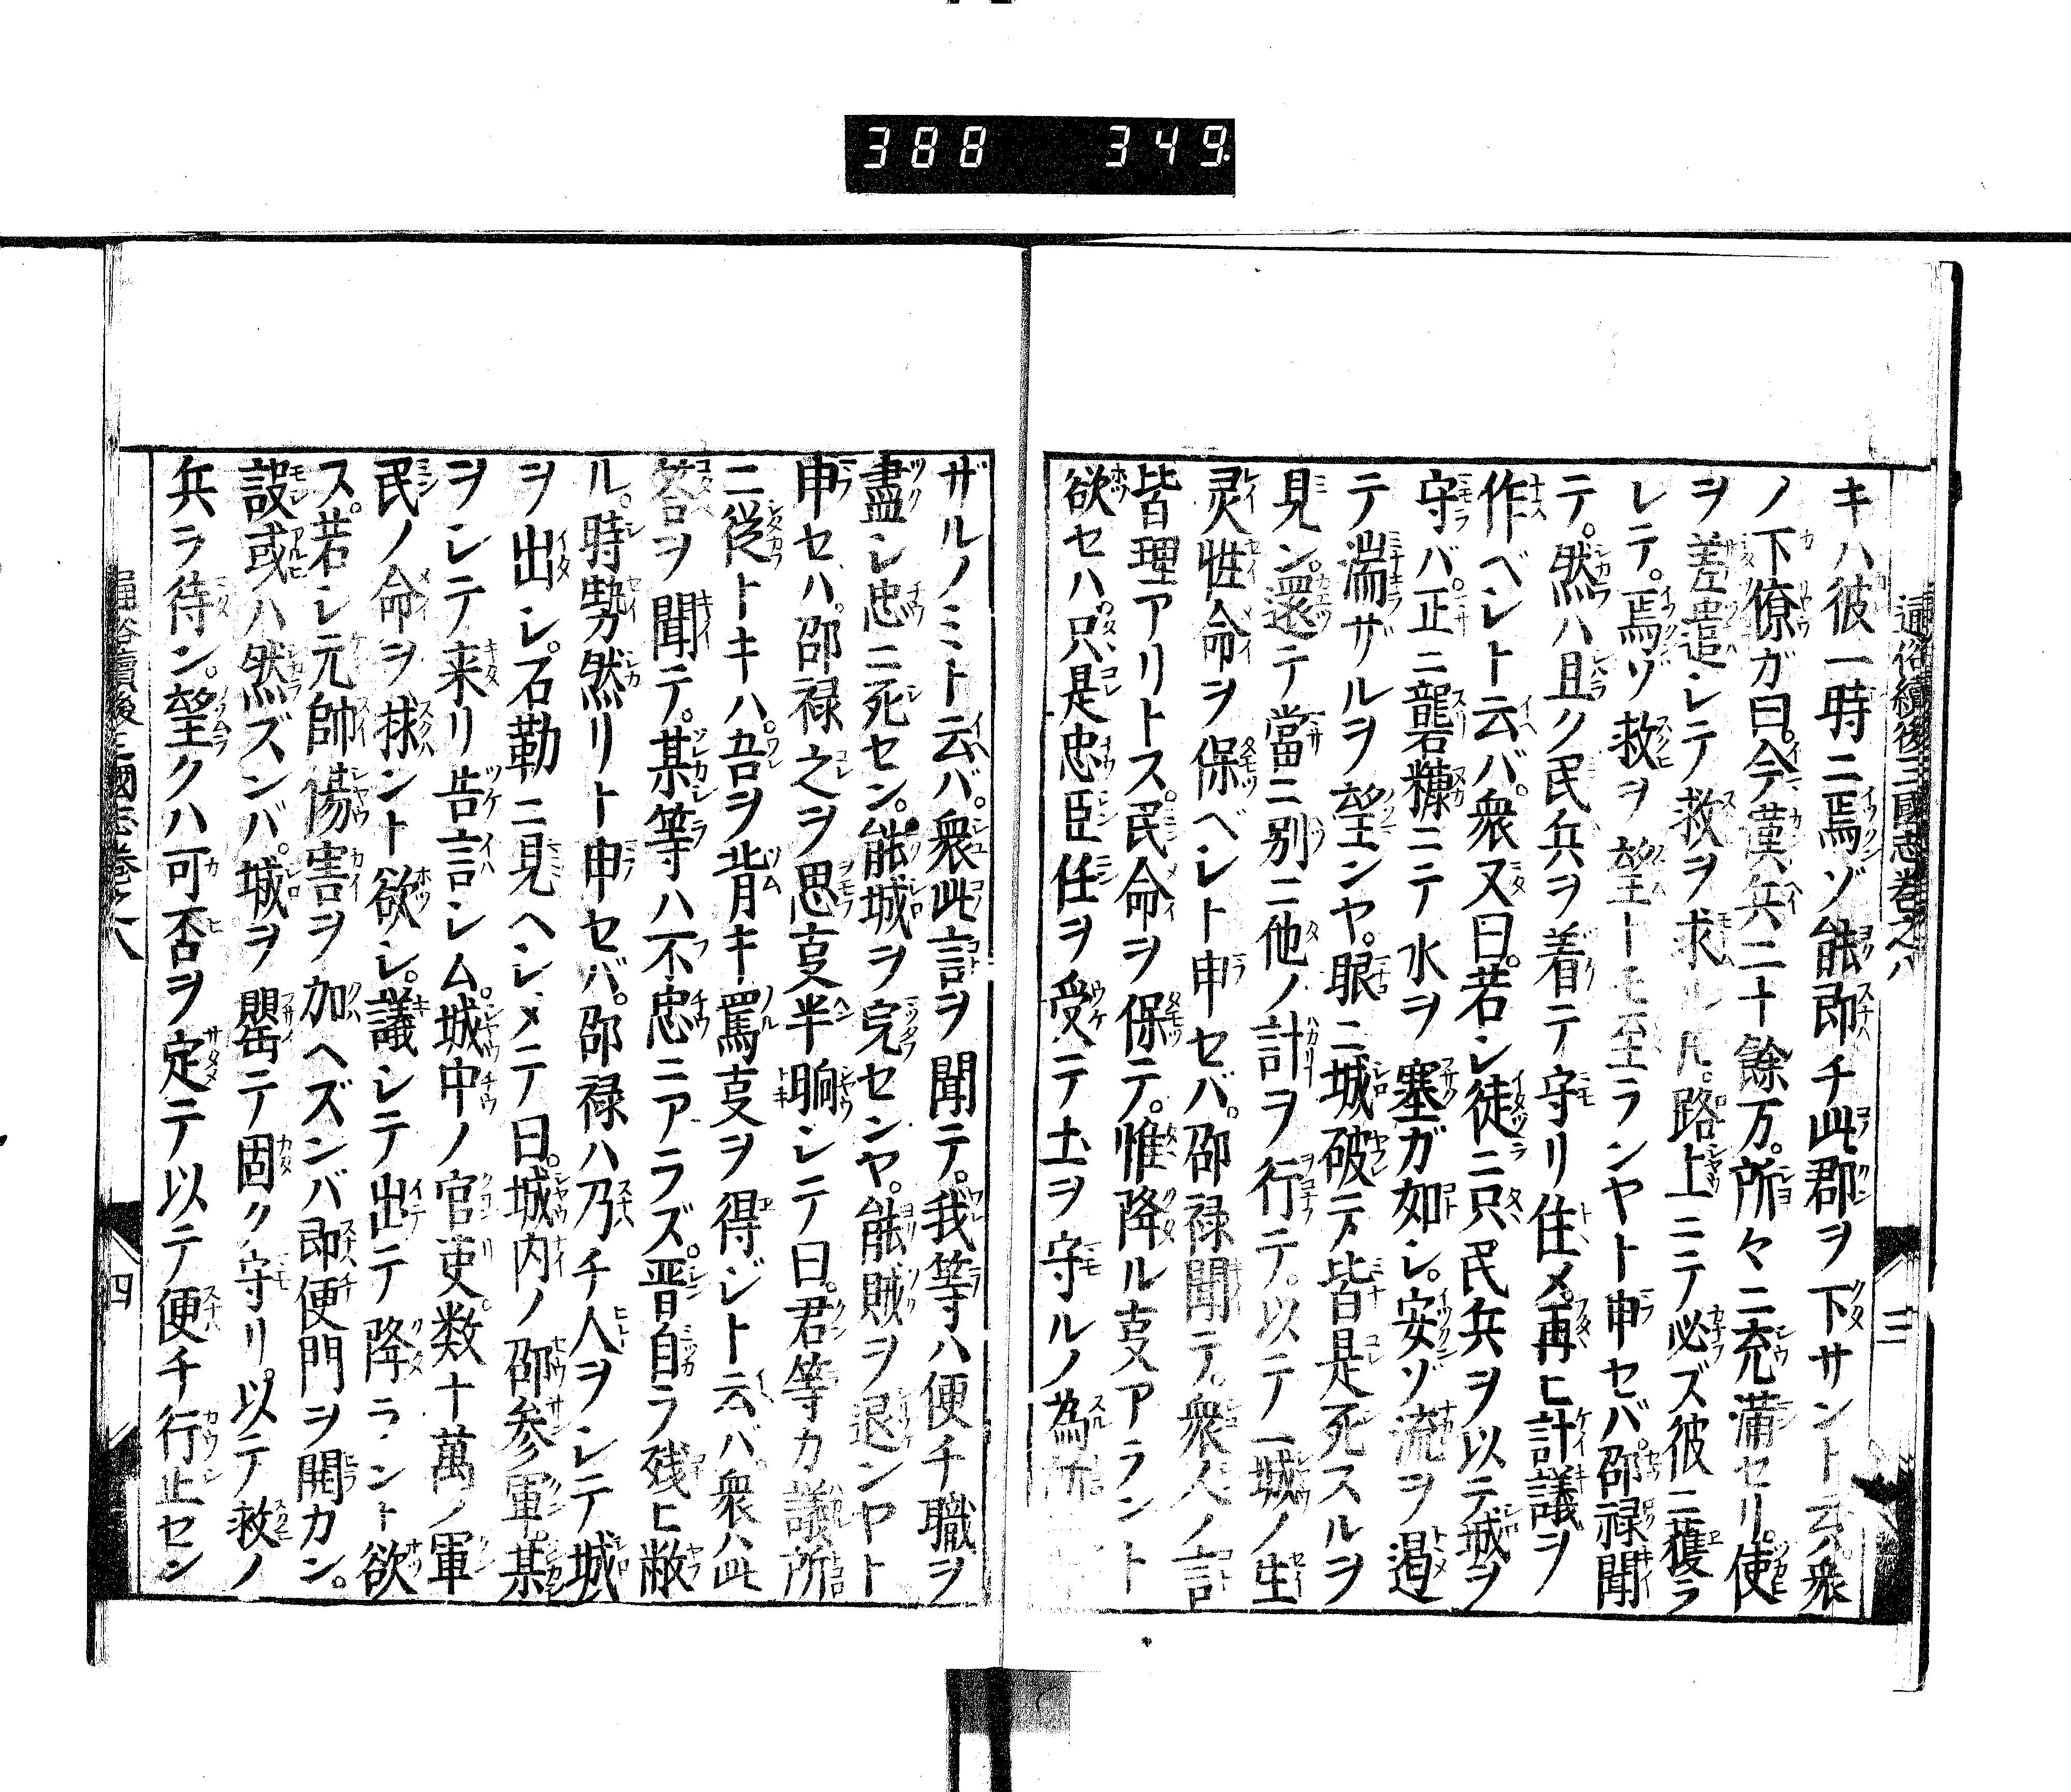 388 349
通俗續後三國志卷之八 三
キハ彼一時ニ焉ゾ能即チ此郡ヲ下サント云衆
ノ下僚ガ曰。今漢兵二十餘万。所々ニ充滿セリ。使
ヲ差遣シテ救ヲ求ル凡。路上ニテ必ズ彼ニ獲ラ
レテ。焉ゾ救ヲ望トモ至ランヤト申セバ。邵禄聞
テ。然ハ且ク民兵ヲ着テ守リ住メ。再ヒ計議ヲ
作ベシト云バ。衆又曰。若シ徒ニ只民兵ヲ以テ城ヲ
守バ。正ニ礱糠ニテ水ヲ塞ガ如シ。安ゾ流ヲ遏
テ湍ザルヲ望ンヤ。眼ニ城破テ皆是死スルヲ
見ン。還テ當ニ別ニ他ノ計ヲ行テ。以テ一城ノ生
灵性命ヲ保ベシト申セバ。邵禄聞テ。衆人ノ言
皆理アリトス。民命ヲ保テ。惟降ル㕝アラント
欲セハ。只是忠臣任ヲ受テ土ヲ守ルノ為
ザルノミト云バ。衆此言ヲ聞テ。我等ハ便チ職ヲ
盡シ忠ニ死セン。能城ヲ完センヤ。能賊ヲ退ンヤト
申セハ。邵禄之ヲ思㕝半晌シテ曰。君等カ議所
ニ從トキハ。吾ヲ背キ罵㕝ヲ得ジト云バ。衆ハ此
答ヲ聞テ。某等ハ不忠ニアラズ。晋自ラ残ヒ敝
ル。時勢然リト申セバ。邵禄ハ乃チ人ヲシテ城
ヲ出シ。石勒ニ見ヘシメテ曰。城内ノ邵參軍。某
ヲシテ来リ告言シム。城中ノ官吏。数十萬ノ軍
民ノ命ヲ救ント欲シ。議シテ出テ降ラント欲
ス。若シ元帥傷害ヲ加ヘズンバ即便門ヲ開カン。
設或ハ然ズンバ。城ヲ罌テ固ク守リ。以テ救ノ
兵ラ待ン。望クハ可否ヲ定テ以テ便チ行止セン
通俗續後三國志卷之八 四